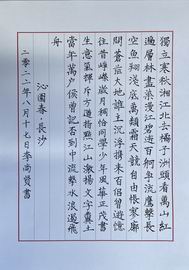 獨立寒秋湘江北去橘子洲頭看萬山紅
遍層林盡染漫江碧透百舸爭流鷹擊長
空魚翔淺底萬類霜天競自由悵寥廓
問蒼茫大地誰主沉浮携來百侶曾遊憶
往昔崢嶸歲月稠恰同學少年風華正茂書
生意氣揮斥方遒指點江山激揚文字糞土
當年萬户侯曾記否到中流擊水浪遏飛
舟
沁園春·長沙
二零二二年八月十七日李尚賢書